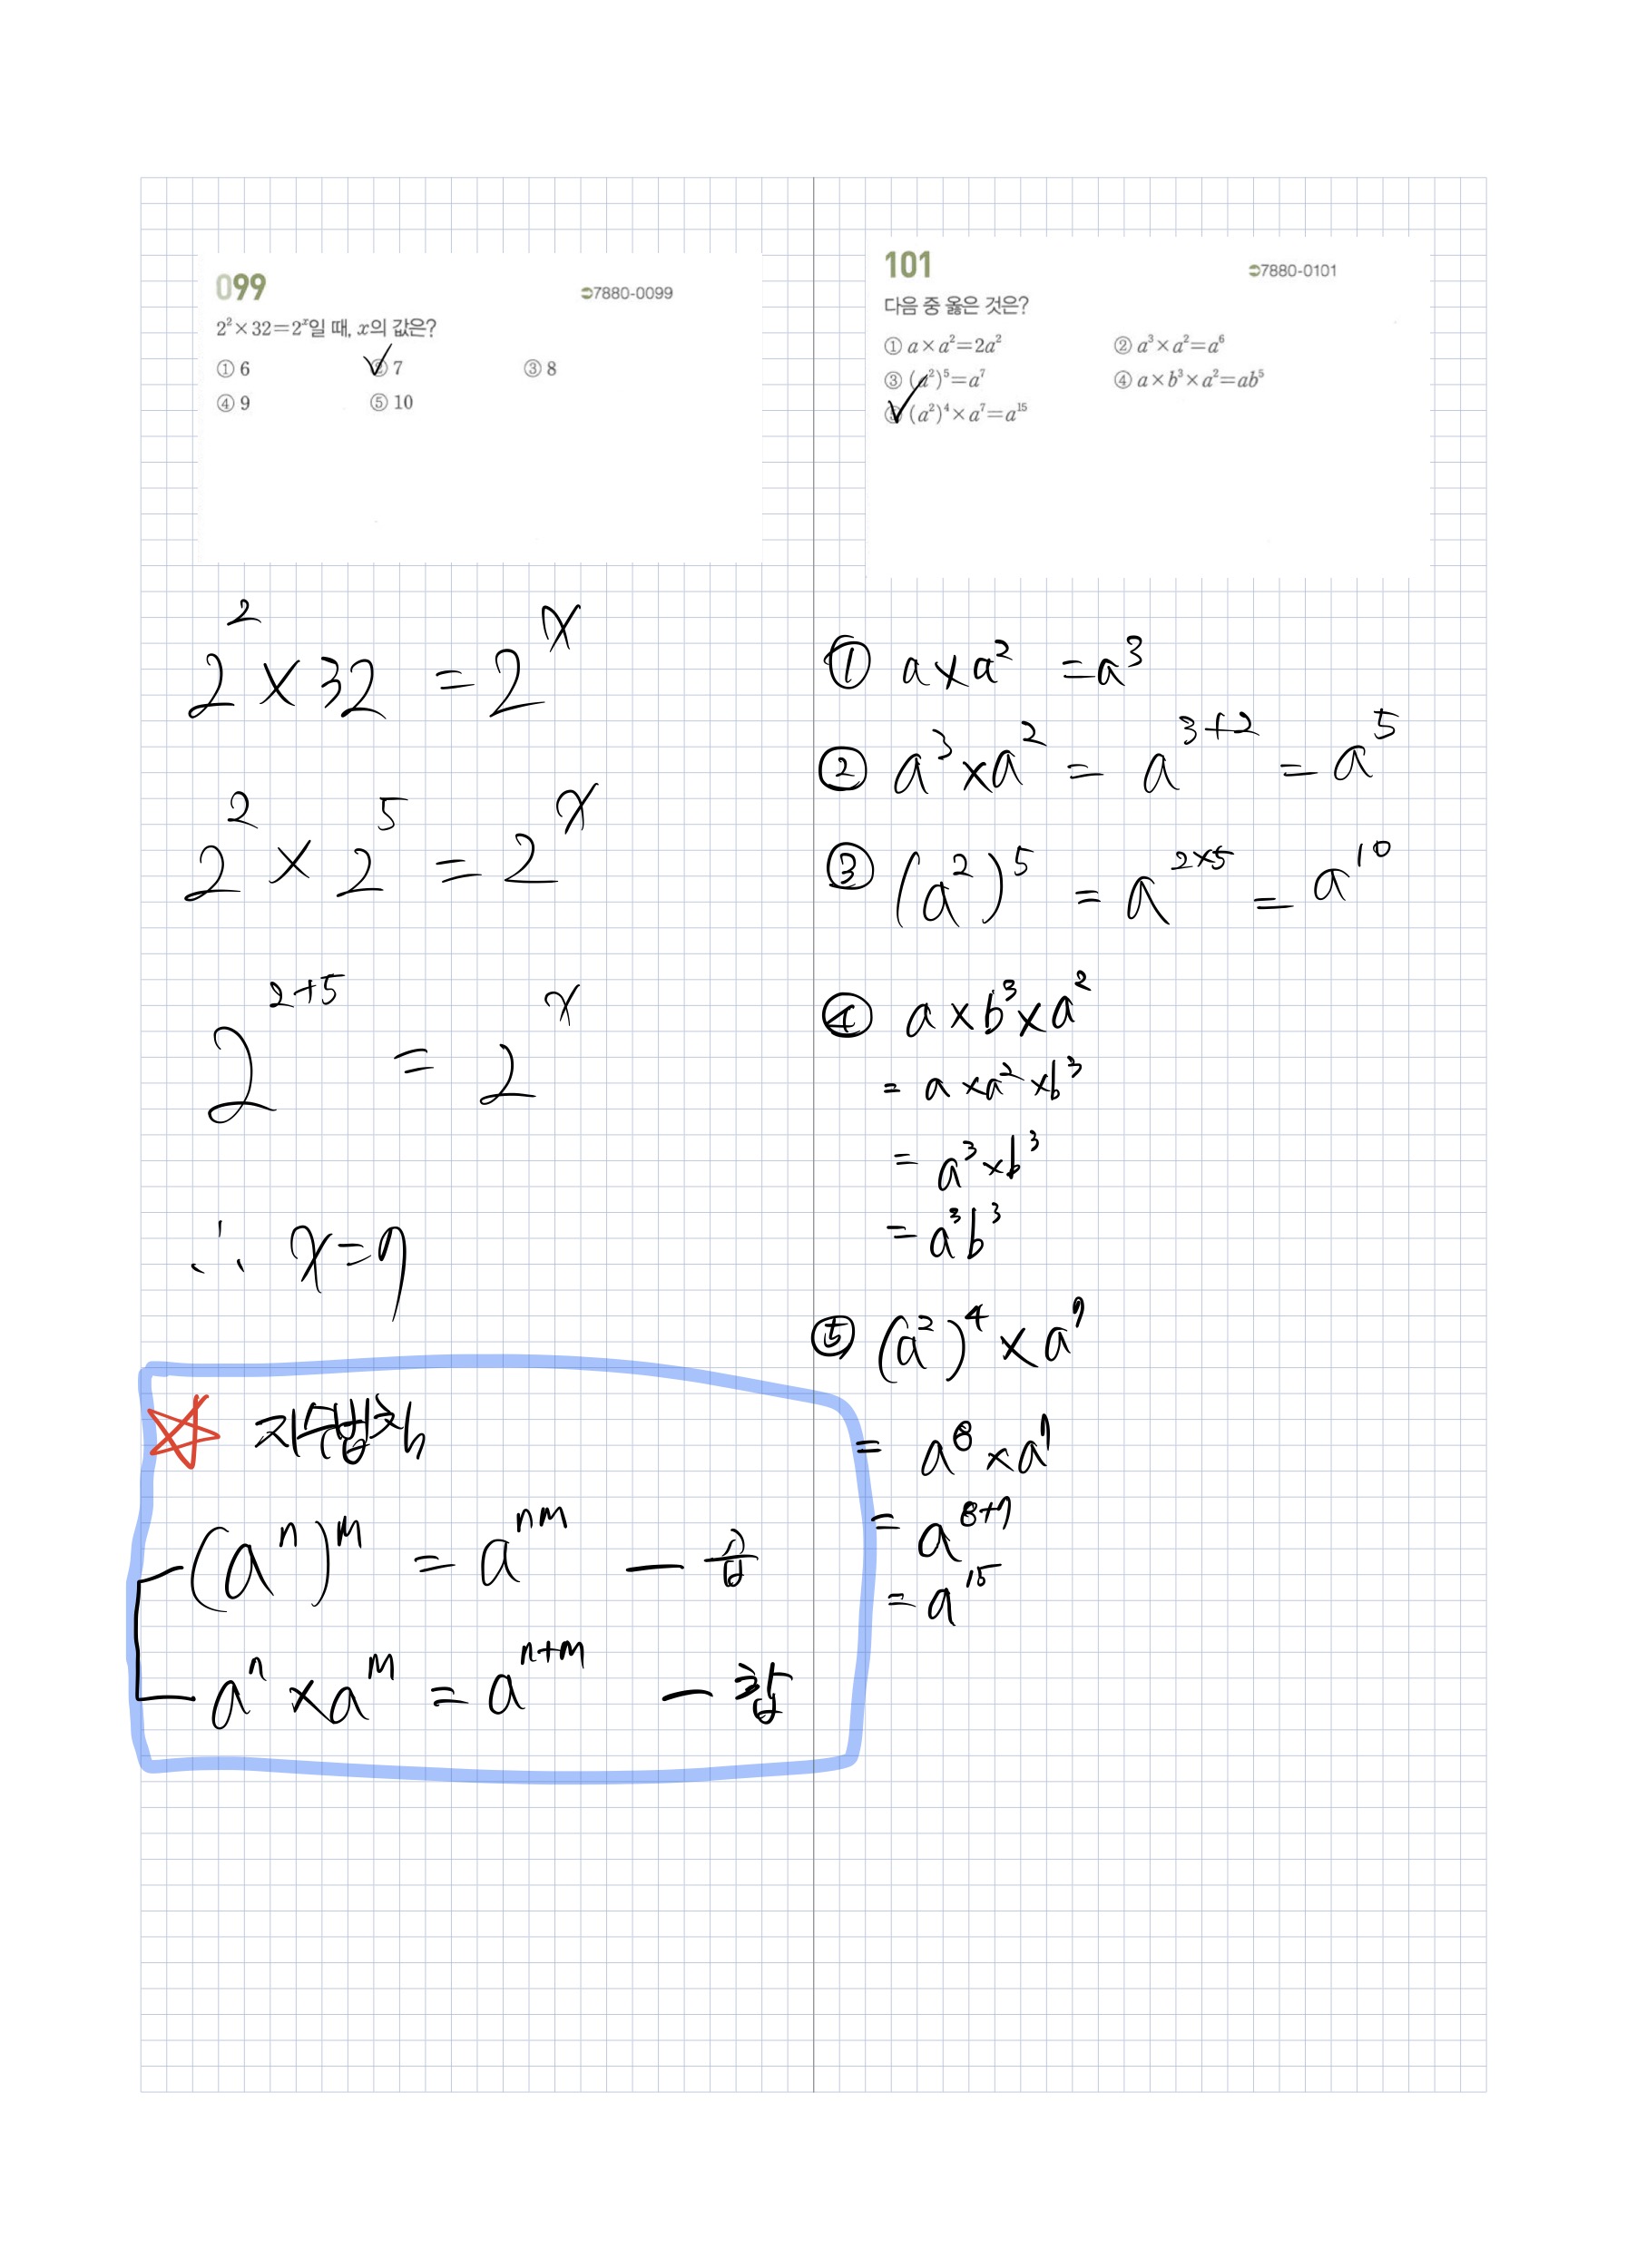 099
➲7880-0099
2²×32=2ˣ일 때, x의 값은?
① 6 ② 7 ③ 8
④ 9 ⑤ 10
2² × 32 = 2ˣ
2² × 2⁵ = 2ˣ
2²⁺⁵ = 2ˣ
∴ x=7
☆ 지수법칙
-(aⁿ)ᵐ = aⁿᵐ - 곱
-aⁿ × aᵐ = aⁿ⁺ᵐ - 합
101
➲7880-0101
다음 중 옳은 것은?
① a×a²=2a² ② a³×a²=a⁶
③ (a²)⁵=a⁷ ④ a×b³×a²=ab⁵
⑤ (a²)⁴×a⁷=a¹⁵
① a×a² =a³
② a³×a² = a³⁺² = a⁵
③ (a²)⁵ = a²ˣ⁵ = a¹⁰
④ a×b³×a²
= a×a²×b³
= a³×b³
= a³b³
⑤ (a²)⁴×a⁷
= a⁸×a⁷
= a⁸⁺⁷
= a¹⁵